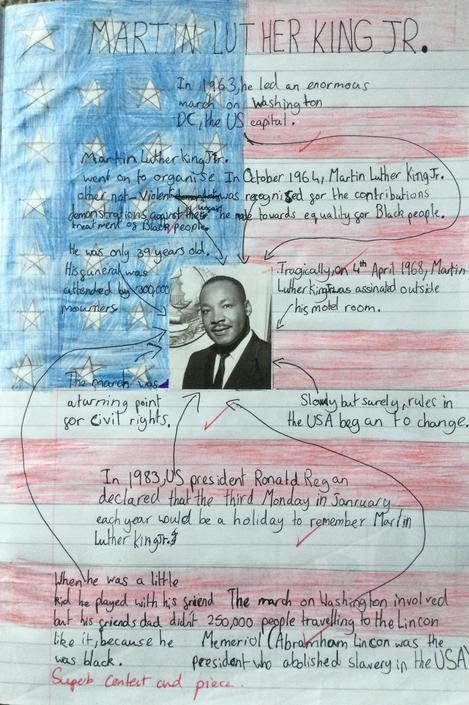 MARTIN LUTHER KING JR.
In 1963, he led an enormous
march on Washington
DC, the US capital.
Martin Luther King Jr.
went on to organise
other not-violent
demonstrations against the unfair
treatment of Black people.
In October 1964, Martin Luther King Jr.
was recognised for the contributions
he made towards equality for Black people.
He was only 39 years old.
His funeral was
attended by 300,000
mourners.
Tragically, on 4th April 1968, Martin
Luther King was assinated outside
his motel room.
The march was
a turning point
for civil rights.
Slowly but surely, rules in
the USA began to change.
In 1983, US president Ronald Regan
declared that the third Monday in Janruary
each year would be a holiday to remember Martin
Luther King Jr.
When he was a little
kid he played with his friend
but his friends dad didn't
like it, because he
was black.
The march on Washington involved
250,000 people travelling to the Lincon
Memeriol (Abramham Lincon was the
president who abolished slavery in the USA)
Superb content and piece.